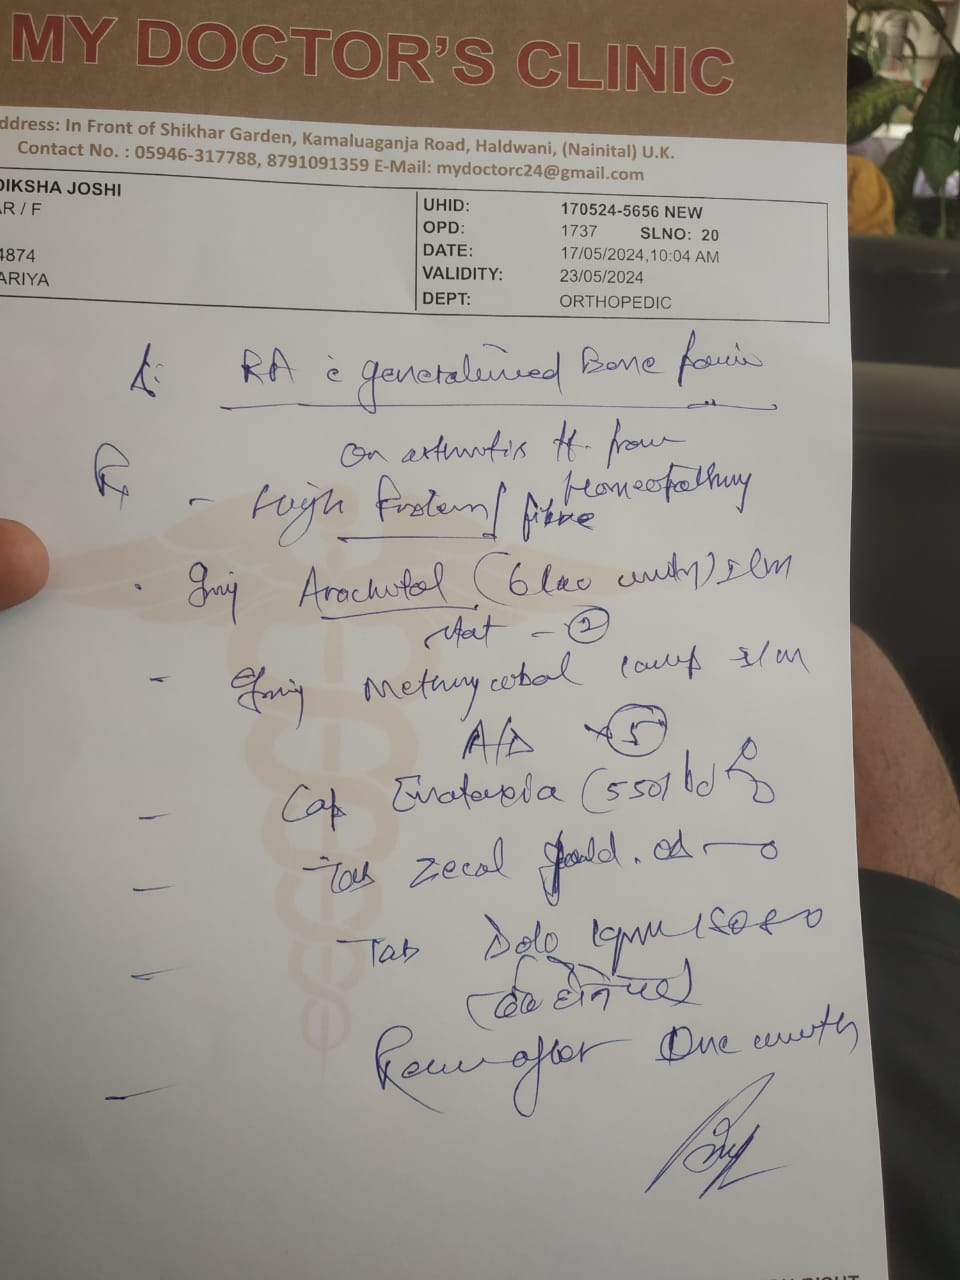 MY DOCTOR'S CLINIC
ddress: In Front of Shikhar Garden, Kamaluaganja Road, Haldwani, (Nainital) U.K.
Contact No. : 05946-317788, 8791091359 E-Mail: mydoctorc24@gmail.com
DIKSHA JOSHI
AR / F
4874
ARIYA
UHID: 170524-5656 NEW
OPD: 1737 SLNO: 20
DATE: 17/05/2024,10:04 AM
VALIDITY: 23/05/2024
DEPT: ORTHOPEDIC
RA c generalised Bone pain
On arthritis tt. from
Homeopathy
- High Protein / fibre
Inj Arachitol (6 lac units) I/M
Stat - 2
- Inj Methylcobal I/M
A/D x 5
- Cap (550) bd
- Tab Zecal gold. od
- Tab Dolo
- after One month